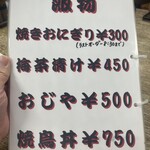 飯物
焼きおにぎり¥300
(ラストオーダー2:30まで)
梅茶漬け¥450
おじや¥500
焼鳥丼¥750